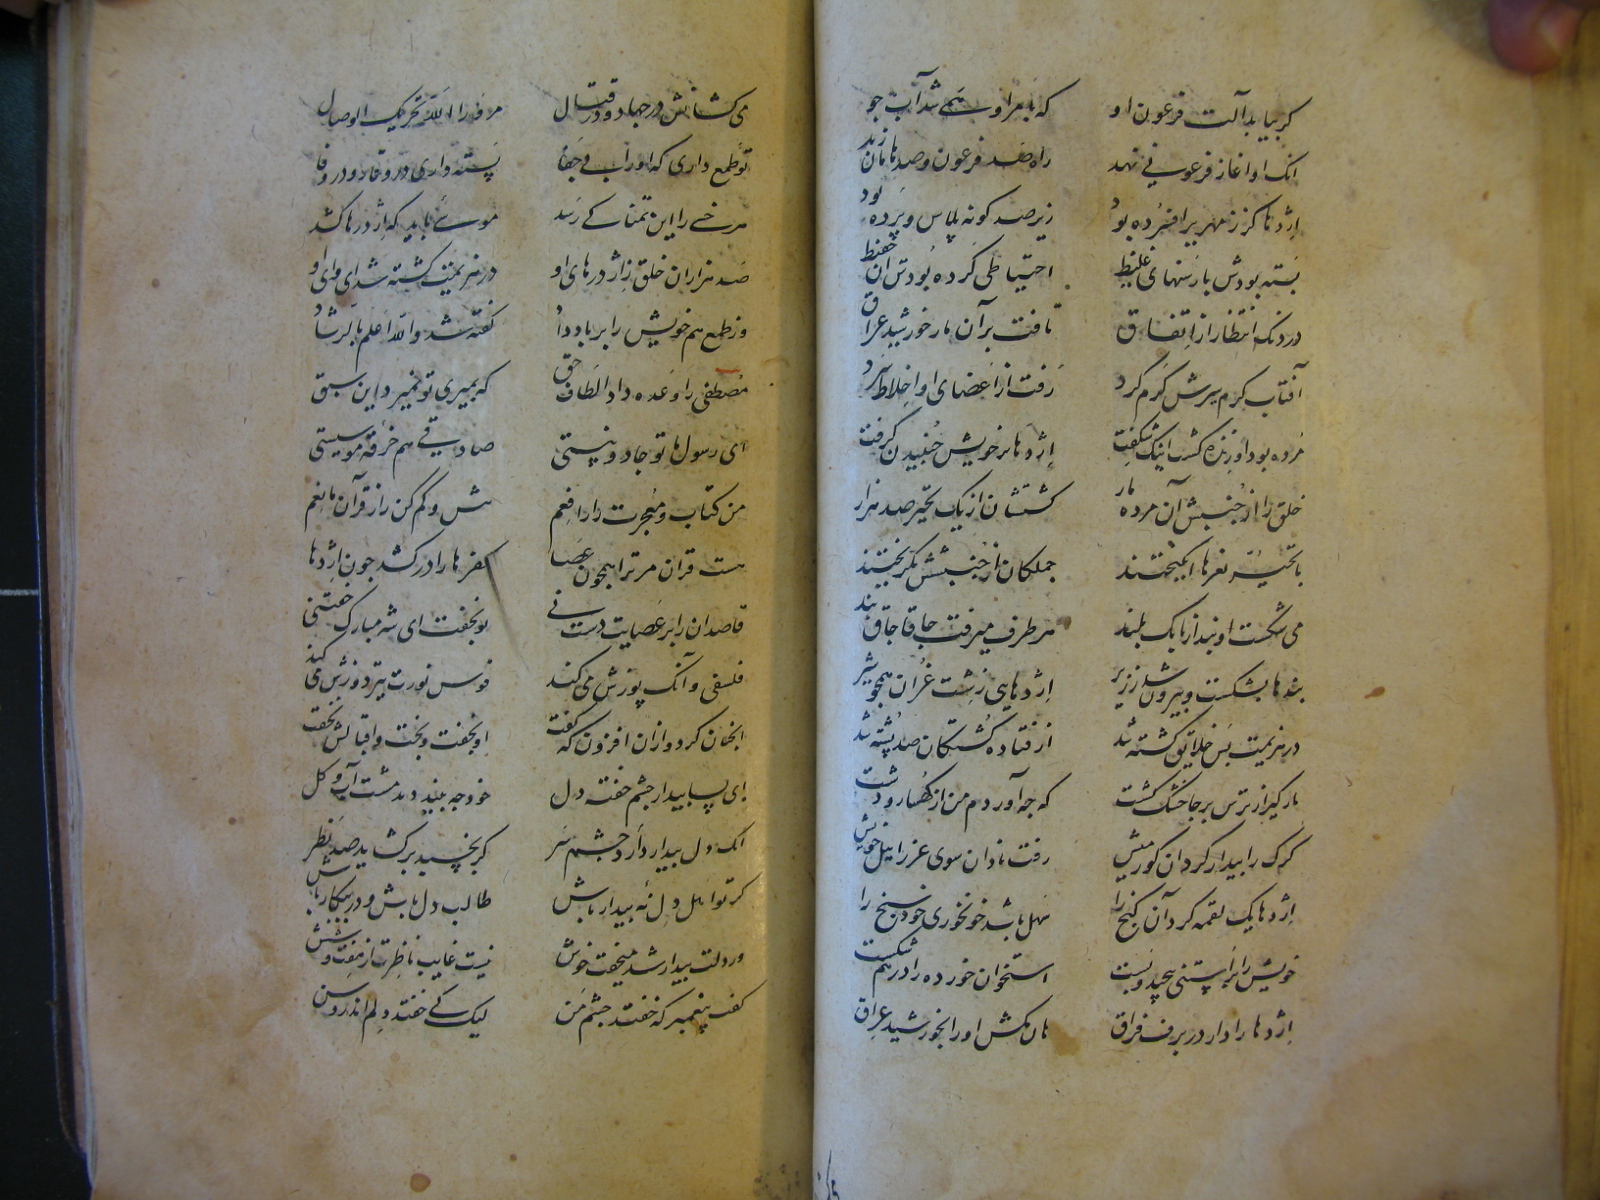 گر بیابد آلت فرعون او که بامر او همی شد آب جو
انک او آغاز فرعونی نهد راه صد فرعون و صد هامان زند
اژدها کز زمهریر افسرده بود زیر صد گونه پلاس و پرده بود
بسته بودش با رسنهای غلیظ احتیاطی کرده بودش آن حفیظ
در درنگ انتظار از اتفاق تافت بر آن مار خورشید عراق
آفتاب گرم سیرش گرم کرد رفت از اعضای او اخلاط سرد
مرده بود او زنده گشت اینک شگفت اژدها بر خویش جنبیدن گرفت
خلق را از جنبش آن مرده مار گشتشان از یک تحیر صد هزار
با تحیر نعرها انگیختند جملگان از جنبشش بگریختند
می شکست او بند از بانگ بلند هر طرف میرفت چاقاچاق بند
بندها بشکست و بیرون شد ز زیر اژدهایی زشت غران همچو شیر
در هزیمت بس خلایق کشته شد از فتاده کشتگان صد پشته شد
مارگیر از ترس بر جا خشک گشت که چه آوردم من از کهسار و دشت
گرگ را بیدار کرد آن کور میش رفت نادان سوی عزراییل خویش
اژدها یک لقمه کرد آن گیج را سهل باشد خونخوری خود سنج را
خویش را بر استنی پیچید و بست استخوان خورده را درهم شکست
اژدها را دار در برف فراق هان مکش او را بخورشید عراق
می کشانش در جهاد و در قتال مردوار الله یجزیک الوصال
تو طمع داری که او را بی جفا بسته داری در وقار و در وفا
هر خسی را این تمنا کی رسد موسیء باید که اژدرها کشد
صد هزاران خلق ز اژدرهای او در هزیمت کشته شد ای وای او
وز طمع هم خویش را بر باد داد گفته شد والله اعلم بالرشاد
مصطفی را وعده داد الطاف حق گر بمیری تو نمیرد این سبق
ای رسول ما تو جادو نیستی صادقی هم خرقه موسیستی
من کتاب و معجزت را رافعم بیش و کم کن را ز قرآن مانعم
هست قران مر ترا همچون عصا کفرها را درکشد چون اژدها
قاصدان را بر عصایت دست نی تو بخفت ای شه مبارک خفتنی
فلسفی و آنک پوزش می کند قوس نورت تیردوزش می کند
انچنان کرد و از ان افزون که گفت او بخفت و بخت و اقبالش نخفت
ای بسا بیدار چشم خفته دل خود چه بیند دید مشت آب و گل
انک دل بیدار دارد چشم سر گر بخسپد برگشاید صد نظر
گر تو اهل دل نهٔ بیدار باش طالب دل باش و در پیکار باش
ور دلت بیدار شد میخفت خوش نیست غایب ناظرت از هفت و شش
گفت پیغمبر که خفتد چشم من لیک کی خفتد دلم اندر وسن